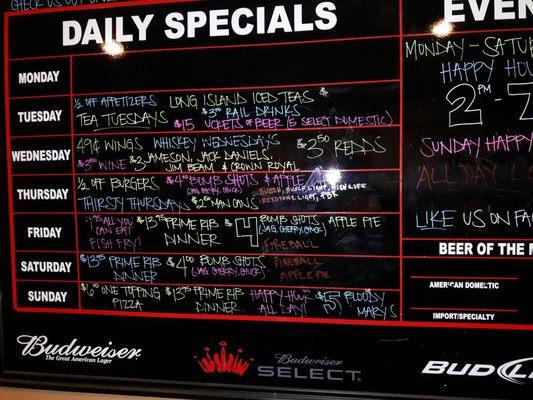 CHECK US OUT ONLINE
DAILY SPECIALS
MONDAY
TUESDAY
½ OFF APPETIZERS LONG ISLAND ICED TEAS
TEA TUESDAYS $3.00 RAIL DRINKS
$15 BUCKETS OF BEER (5 SELECT DOMESTIC)
WEDNESDAY
49¢ WINGS WHISKEY WEDNESDAYS $3.50 REDDS
$3.50 WINE $3 JAMESON, JACK DANIELS,
JIM BEAM & CROWN ROYAL
THURSDAY
½ OFF BURGERS $4.00 BOMB SHOTS & APPLE
(JAG, CHERRY, CHUCK) BUSCH, BUSCH LIGHT, HIGH LIFE
THIRSTY THURSDAYS $2.00 CANS KEYSTONE LIGHT, PBR
FRIDAY
ALL YOU CAN EAT FISH FRY!
$13.95 PRIME RIB DINNER
$4 BOMB SHOTS, APPLE PIE
(JAG, CHERRY, CHUCK)
FIREBALL
SATURDAY
$13.95 PRIME RIB DINNER
$4.00 BOMB SHOTS FIREBALL
(JAG, CHERRY, CHUCK) APPLE PIE
SUNDAY
$6.00 ONE TOPPING PIZZA
$13.95 PRIME RIB DINNER
HAPPY HOUR ALL DAY!
$5 BLOODY MARYS
EVEN
MONDAY - SATUR
HAPPY HOU
2PM - 7
SUNDAY HAPPY
ALL DAY
LIKE US ON FA
BEER OF THE M
AMERICAN DOMESTIC
IMPORT/SPECIALTY
Budweiser
The Great American Lager
Budweiser
SELECT
BUD L